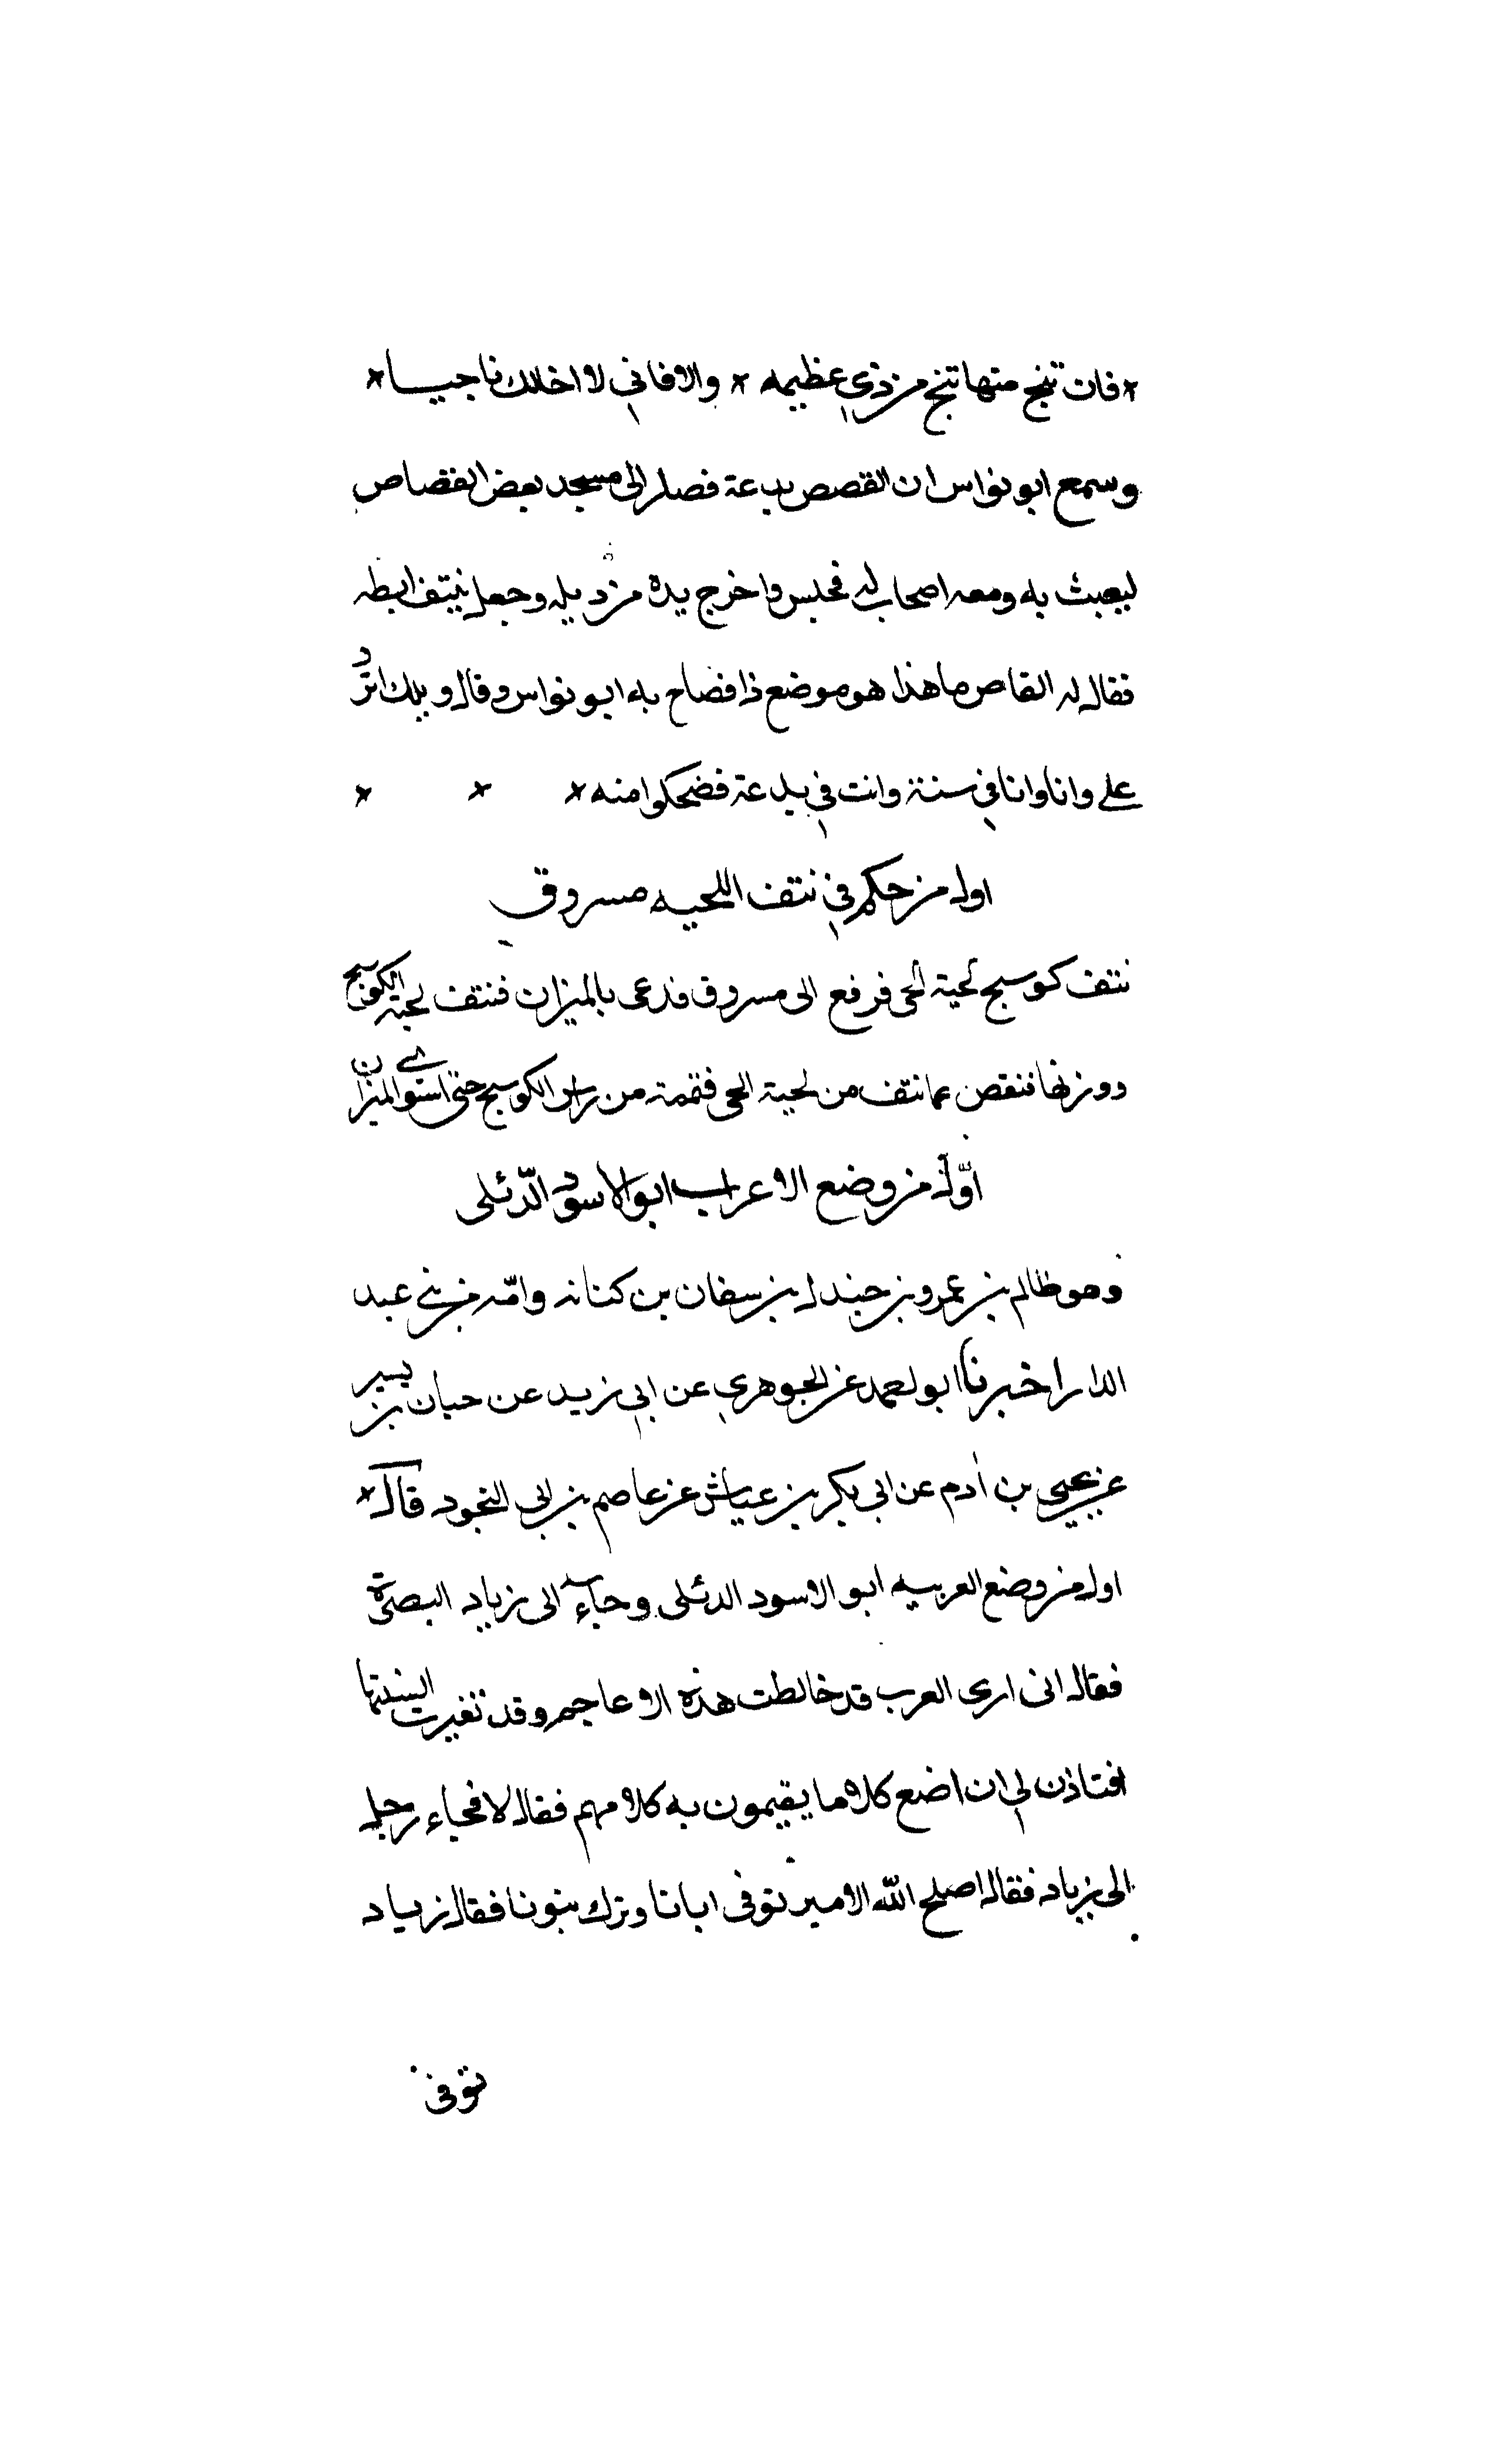 * فان تنج منها تنج من ذي عظيمه * والا فاني لا اخالك ناجيا *
وسمع ابو نواس ان القصص بدعة فصار الى مسجد بعض القصاص
ليعبث به ومعه اصحاب له فجلس واخرج يده من ذيله وجعل ينتف ابطه
فقال له القاص ما هذا هو موضع ذا فصاح به ابو نواس وقال ويلك اترد
علي وانا وانا في سنة وانت في بدعة فضحكوا منه * * *
اول من حكم في نتف اللحيه مسروق
نتف كوسج لحية الحى فرفع الى مسروق فدعى بالميزان فنتف لحية الكوسج
ووزنها فنقص عما نتف من لحية الحى فتممه من راس الكوسج حتى استوى الميزان
اوّل من وضع الاعراب ابو الاسود الدّئلى
وهو ظالم بن عمرو بن جندل بن سفان بن كنانه وامّه من بني عبد
الدار اخبرنا ابو احمد عن الجوهري عن ابي زيد عن حبان بن بسير
عن يحيى بن ادم عن ابي بكر بن عياش عن عاصم بن ابي النجود قال *
اول من وضع العربيه ابو الاسود الدئلى وجاء الى زياد البصرة
فقال انى ارى العرب قد خالطت هذه الاعاجم وقد تغيرت السنتها
افتاذن لي ان اضع كلاما يقيمون به كلامهم فقال لا فجاء رجل
الى زياد فقال اصلح الله الامير توفى ابانا وترك بنونا فقال زياد
توفى